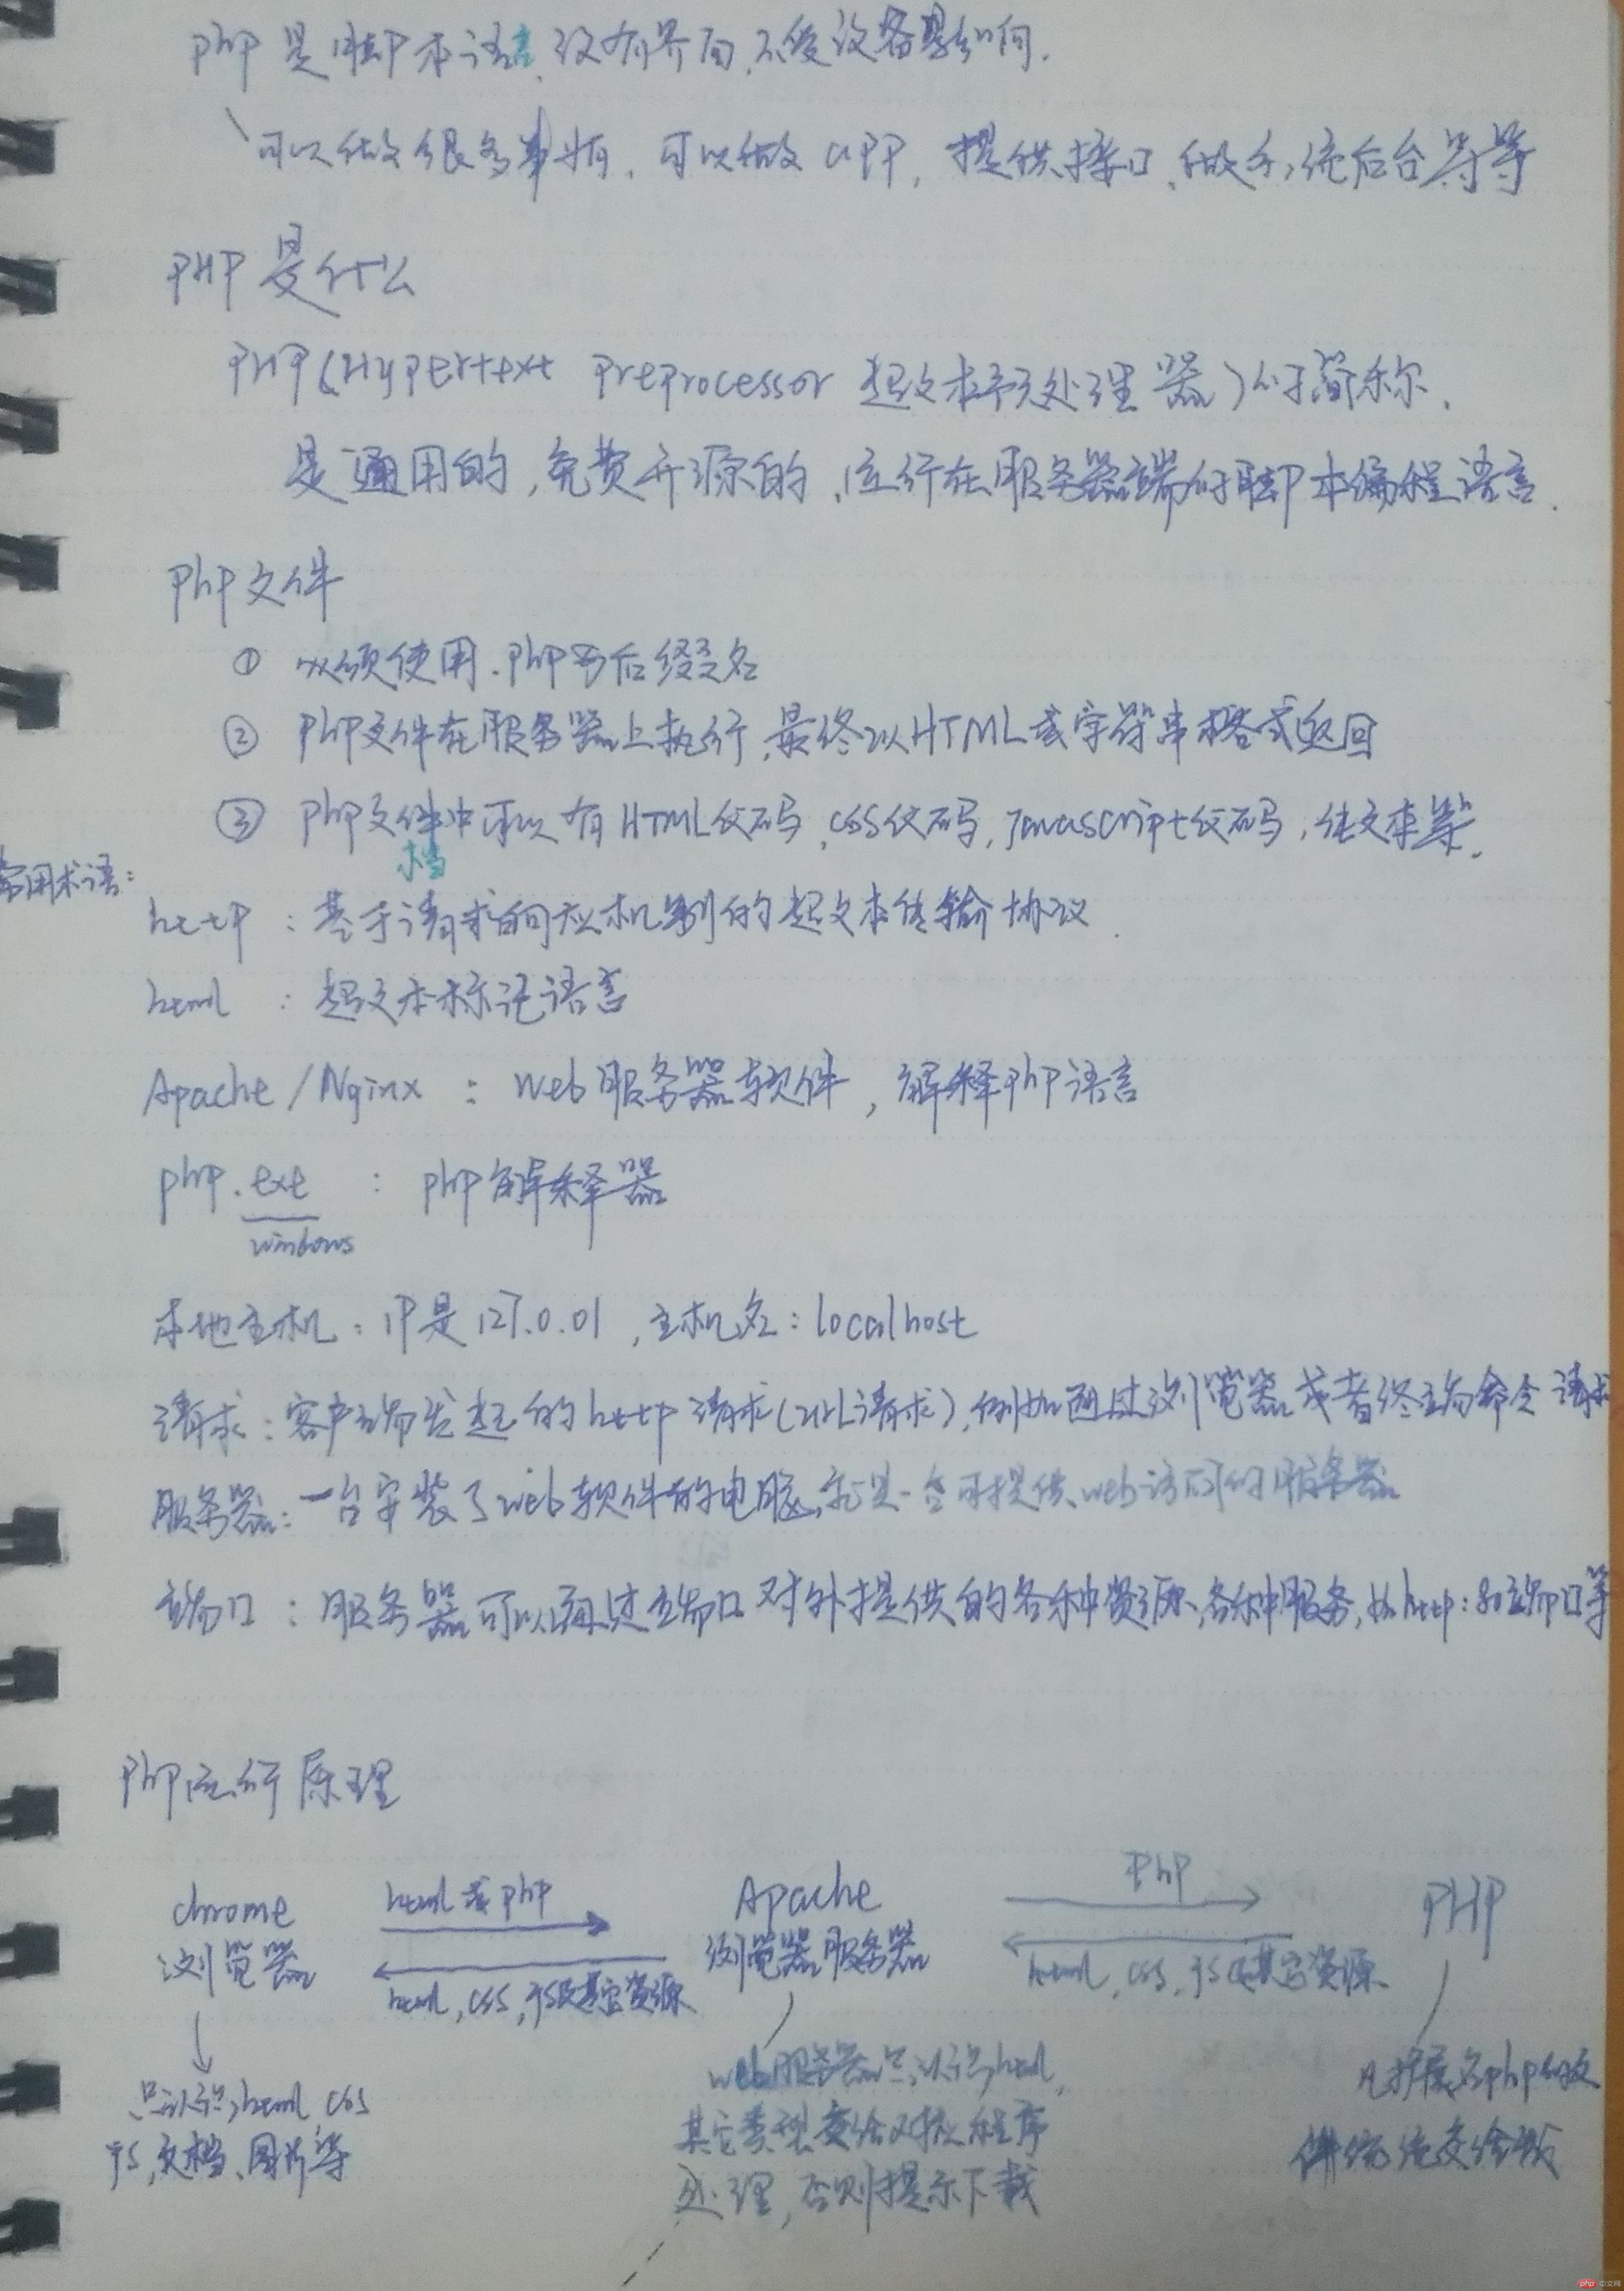 php 是脚本语言,没有界面,不受设备影响.
可以做很多事情,可以做 APP, 提供接口、做系统后台等等
PHP 是什么
PHP (Hypertext Preprocessor 超文本预处理器)的简称.
是通用的,免费开源的,运行在服务器端的脚本编程语言.
php文件
① 必须使用.php为后缀名
② php文件在服务器上执行,最终以HTML或字符串格式返回
③ php文件中可以有HTML代码,css代码,Javascript代码,纯文本等.
档
常用术语:
http : 基于请求响应机制的超文本传输协议.
html : 超文本标记语言
Apache/Nginx : Web服务器软件,解释php语言
php.exe : php解释器
windows
本地主机: IP是127.0.01,主机名: localhost
请求:客户端发起的http请求(URL请求),例如通过浏览器或者终端命令请求
服务器:一台安装了web软件的电脑,就是一台可提供web访问的服务器
端口:服务器可以通过端口对外提供的各种资源,各种服务,如http:80端口等
php运行原理
html或php
php
chrome
Apache
PHP
浏览器
浏览器服务器
html,css,js及其它资源
html,css,js及其它资源
只认识html css
js,文档、图片等
web服务器只认识html,
其它类型交给对应程序
处理,否则提示下载
凡扩展名php的文
件统统交给我
php 中文网